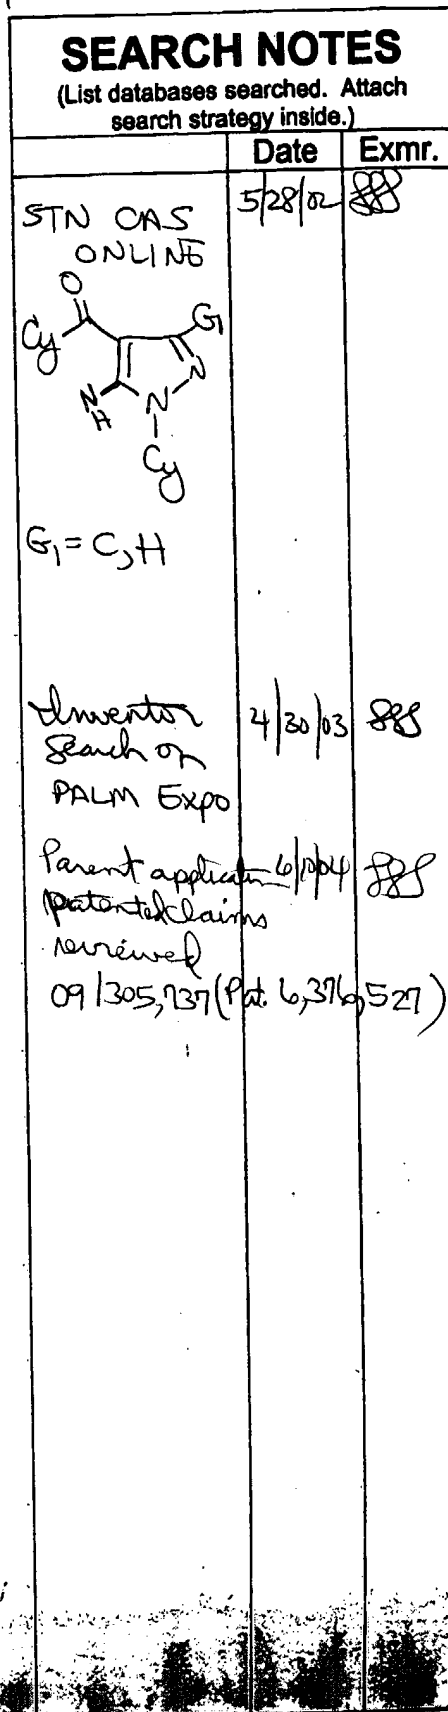 SEARCH NOTES
(List databases searched. Attach
search strategy inside.)
Date Exmr.
STN CAS 5/28/02
ONLINE
O
Cy G1
N
N H N
Cy
G1 = C, H
Inventor 4/30/03
Search on
PALM Expo
Parent application 6/10/04
patented claims
reviewed
09/305,737 (Pat. 6,376,527)